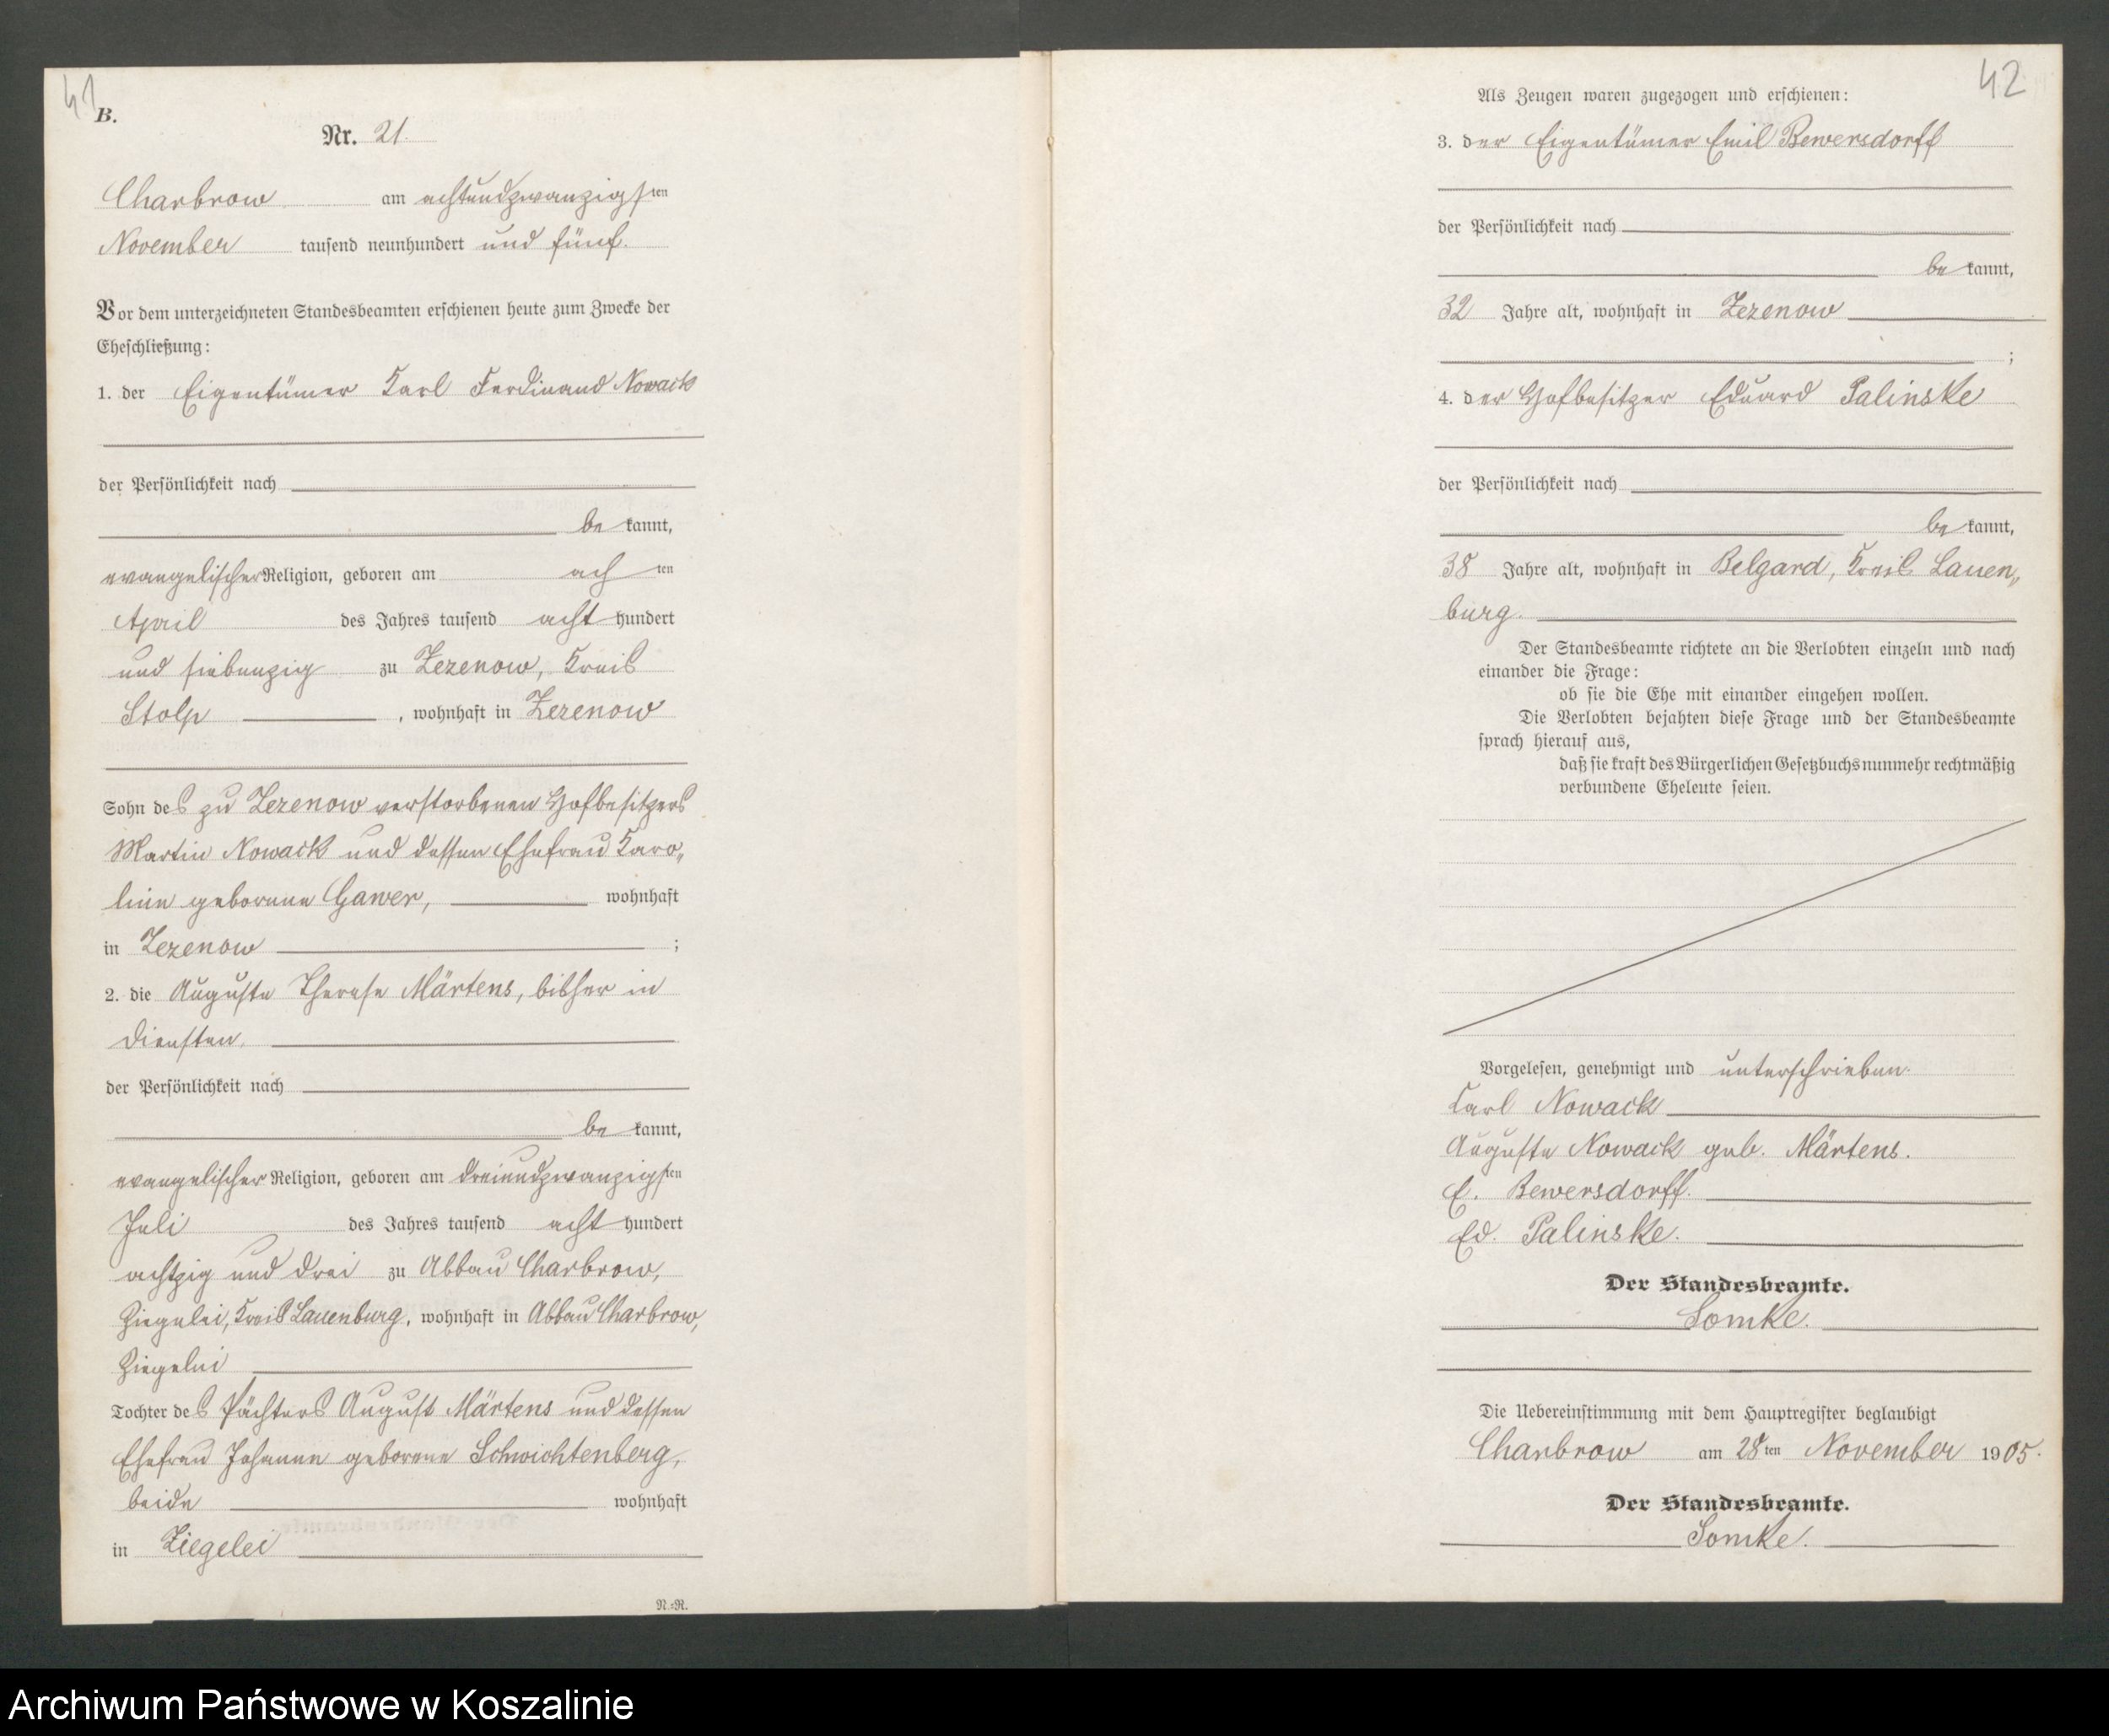 41
B.
Nr. 21.
Charbrow am achtundzwanzigsten
November tausend neunhundert und fünf.
Vor dem unterzeichneten Standesbeamten erschienen heute zum Zwecke der
Eheschließung:
1. der Eigentümer Karl Ferdinand Nowack
der Persönlichkeit nach
be kannt,
evangelischer Religion, geboren am ach ten
April des Jahres tausend acht hundert
und siebenzig zu Zezenow, Kreis
Stolp , wohnhaft in Zezenow
Sohn des zu Zezenow verstorbenen Hofbesitzers
Martin Nowack und dessen Ehefrau Karo„
line geborene Gawer, wohnhaft
in Zezenow ;
2. die Auguste Therese Märtens, bisher in
Diensten.
der Persönlichkeit nach
be kannt,
evangelischer Religion, geboren am dreiundzwanzigsten
Juli des Jahres tausend acht hundert
achtzig und drei zu Abbau Charbrow,
Ziegelei, Kreis Lauenburg, wohnhaft in Abbau Charbrow,
Ziegelei
Tochter des Pächters August Märtens und dessen
Ehefrau Johanne geborene Schwichtenberg,
beide wohnhaft
in Ziegelei
N.-R.
42
Als Zeugen waren zugezogen und erschienen:
3. der Eigentümer Emil Bewersdorff
der Persönlichkeit nach
be kannt,
32 Jahre alt, wohnhaft in Zezenow
;
4. der Hofbesitzer Eduard Palinske
der Persönlichkeit nach
be kannt,
38 Jahre alt, wohnhaft in Belgard, Kreis Lauen„
burg.
Der Standesbeamte richtete an die Verlobten einzeln und nach
einander die Frage:
ob sie die Ehe mit einander eingehen wollen.
Die Verlobten bejahten diese Frage und der Standesbeamte
sprach hierauf aus,
daß sie kraft des Bürgerlichen Gesetzbuchs nunmehr rechtmäßig
verbundene Eheleute seien.
Vorgelesen, genehmigt und unterschrieben.
Karl Nowack
Auguste Nowack geb. Märtens.
E. Bewersdorff.
Ed. Palinske.
Der Standesbeamte.
Somke.
Die Uebereinstimmung mit dem Hauptregister beglaubigt
Charbrow am 28ten November 1905.
Der Standesbeamte.
Somke.
Archiwum Państwowe w Koszalinie